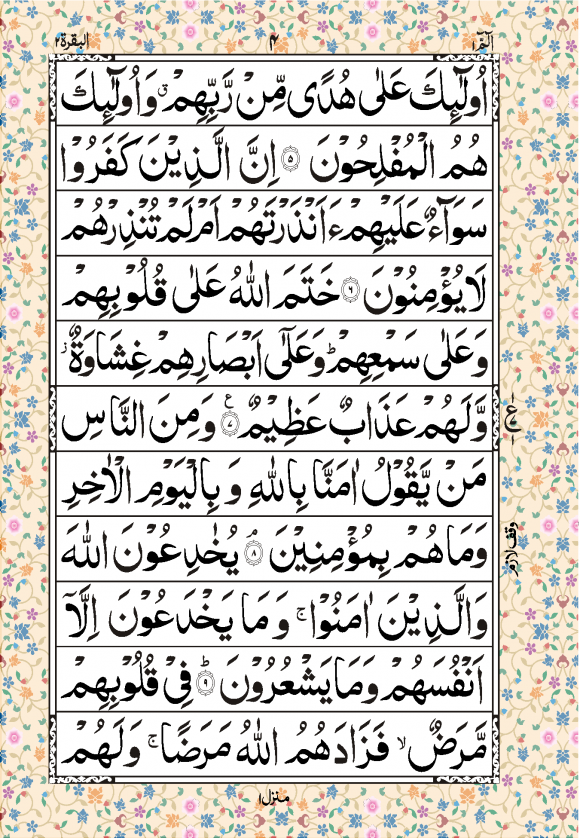 الٓمّٓ ١ ۴ البقرة ٢
اُولٰٓئِكَ عَلٰى هُدًى مِّنْ رَّبِّهِمْ ۗ وَاُولٰٓئِكَ
هُمُ الْمُفْلِحُوْنَ ۝۵ اِنَّ الَّذِيْنَ كَفَرُوْا
سَوَآءٌ عَلَيْهِمْ ءَاَنْذَرْتَهُمْ اَمْ لَمْ تُنْذِرْهُمْ
لَا يُؤْمِنُوْنَ ۝۶ خَتَمَ اللّٰهُ عَلٰى قُلُوْبِهِمْ
وَعَلٰى سَمْعِهِمْ ؕ وَعَلٰٓى اَبْصَارِهِمْ غِشَاوَةٌ ز
وَّلَهُمْ عَذَابٌ عَظِيْمٌ ۝۷ ع وَمِنَ النَّاسِ
ع
مَنْ يَّقُوْلُ اٰمَنَّا بِاللّٰهِ وَ بِالْيَوْمِ الْاٰخِرِ
وَمَا هُمْ بِمُؤْمِنِيْنَ ۝۸ۘ يُخٰدِعُوْنَ اللّٰهَ
وقف لازم
وَالَّذِيْنَ اٰمَنُوْا ۚ وَ مَا يَخْدَعُوْنَ اِلَّآ
اَنْفُسَهُمْ وَمَا يَشْعُرُوْنَ ۝۹ؕ فِيْ قُلُوْبِهِمْ
مَّرَضٌ ۙ فَزَادَهُمُ اللّٰهُ مَرَضًا ۚ وَلَهُمْ
منزل ١